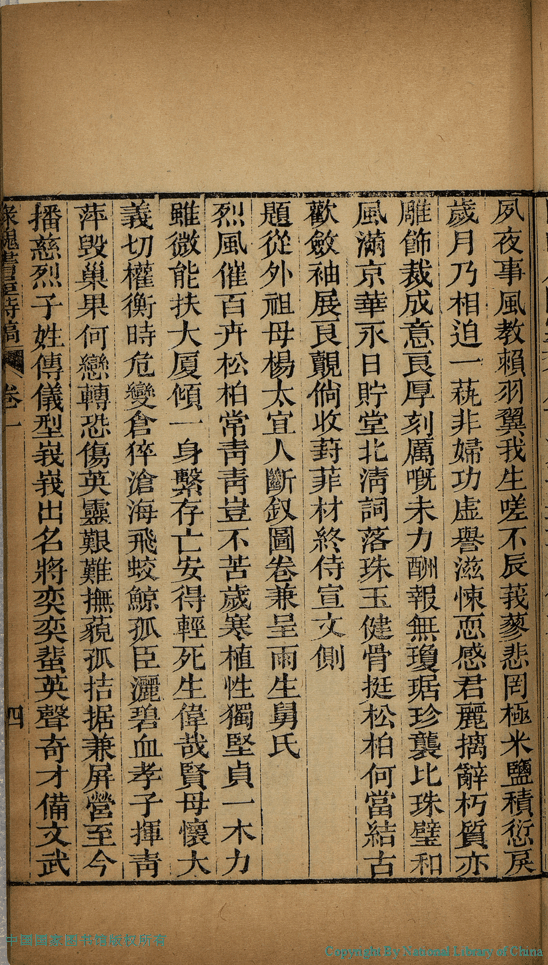 夙夜事風教賴羽翼我生嗟不辰莪蓼悲罔極米鹽積愆戾
歲月乃相迫一蓺非婦功虛譽滋悚恧感君麗摛辭朽質亦
雕飾裁成意良厚刻厲嘅未力酬報無瓊琚珍襲比珠璧和
風滿京華永日貯堂北淸詞落珠玉健骨挺松柏何當結古
歡斂袖展良覿倘收葑菲材終侍宣文側
題從外祖母楊太宜人斷釵圖卷兼呈雨生舅氏
烈風催百卉松柏常靑靑豈不苦歲寒植性獨堅貞一木力
雖微能扶大厦傾一身繫存亡安得輕死生偉哉賢母懷大
義切權衡時危變倉猝滄海飛蛟鯨孤臣灑碧血孝子揮靑
萍毀巢果何戀轉恐傷英靈艱難撫藐孤拮据兼屏營至今
播慈烈子姓傳儀型峩峩出名將奕奕蜚英聲奇才備文武
槐書詩稿 卷一 四
中國國家圖書館版權所有
Copyright By National Library of China